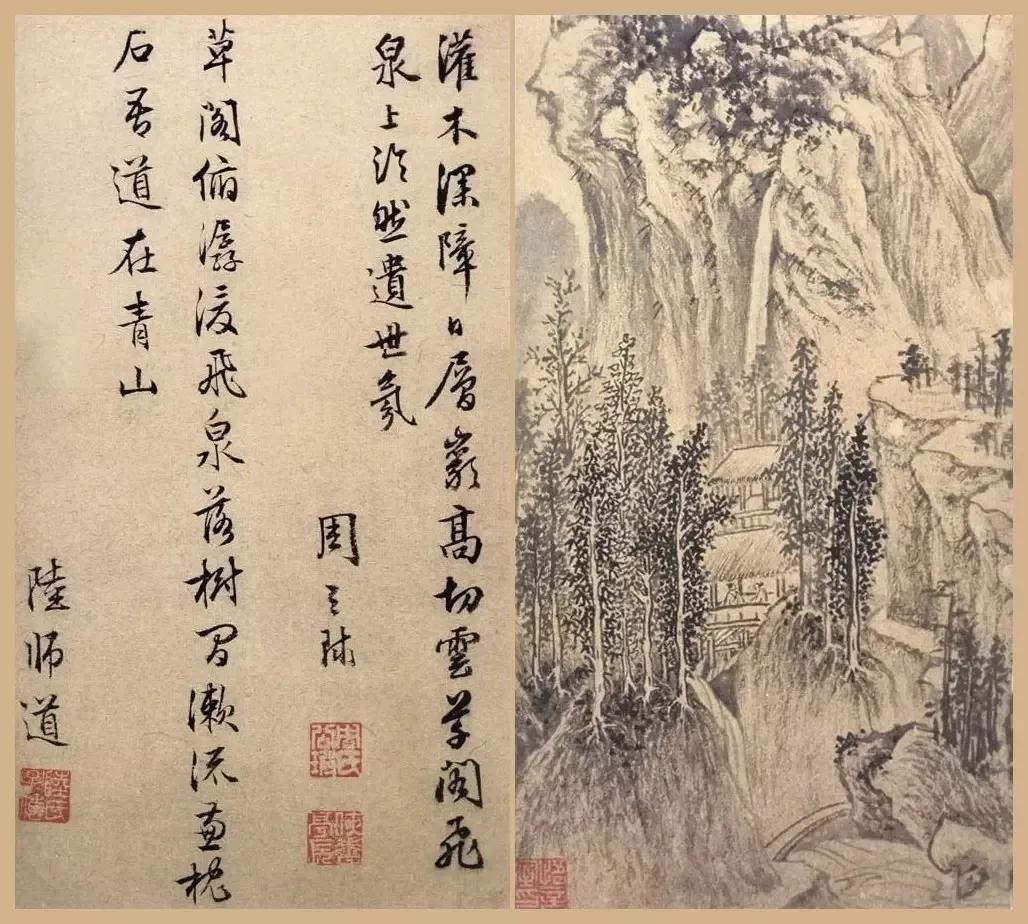 灌木深障日層巖高切雲草閣飛
泉上泠然遺世氛
周天球
周氏公瑕
草閣俯潺湲飛泉落樹間漱流兼枕
石吾道在青山
陸師道
陸氏子傳